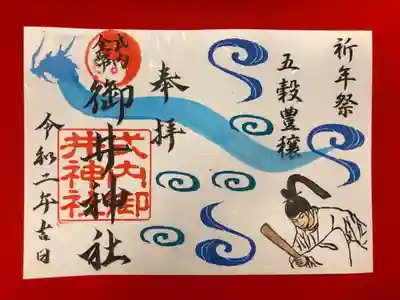 祈年祭
五穀豊穣
奉拝
式内
御井神社
式内御
井神社
令和二年吉日